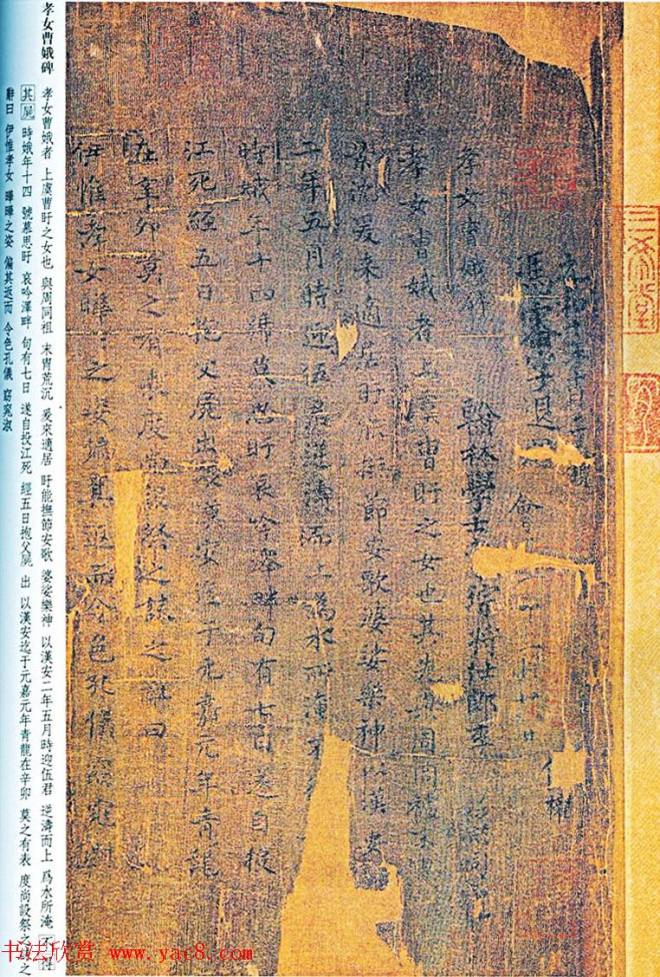 三希堂
翰林學士
孝女曹娥碑
孝女曹娥者上虞曹盱之女也其先與周同祖末胄
荒沉爰來適居盱能撫節安歌婆娑樂神以漢安
二年五月時迎伍君逆濤而上為水所淹不
時娥年十四號慕思盱哀吟澤畔旬有七日遂自投
江死經五日抱父屍出以漢安迄于元嘉元年青龍
在辛卯莫之有表度尚設祭之誄之辭曰
伊惟孝女曄曄之姿偏其返而令色孔儀窈窕淑
孝女曹娥碑
孝女曹娥者 上虞曹盱之女也 與周同祖 末胄荒沉 爰來適居 盱能撫節安歌 婆娑樂神 以漢安二年五月時迎伍君 逆濤而上 爲水所淹
其屍 時娥年十四 號慕思盱 哀吟澤畔 旬有七日 遂自投江死 經五日抱父屍 出 以漢安迄于元嘉元年青龍在辛卯 莫之有表 度尚設祭之誄之
辭曰 伊惟孝女 曄曄之姿 偏其返而 令色孔儀 窈窕淑
书法欣赏 www.yac8.com